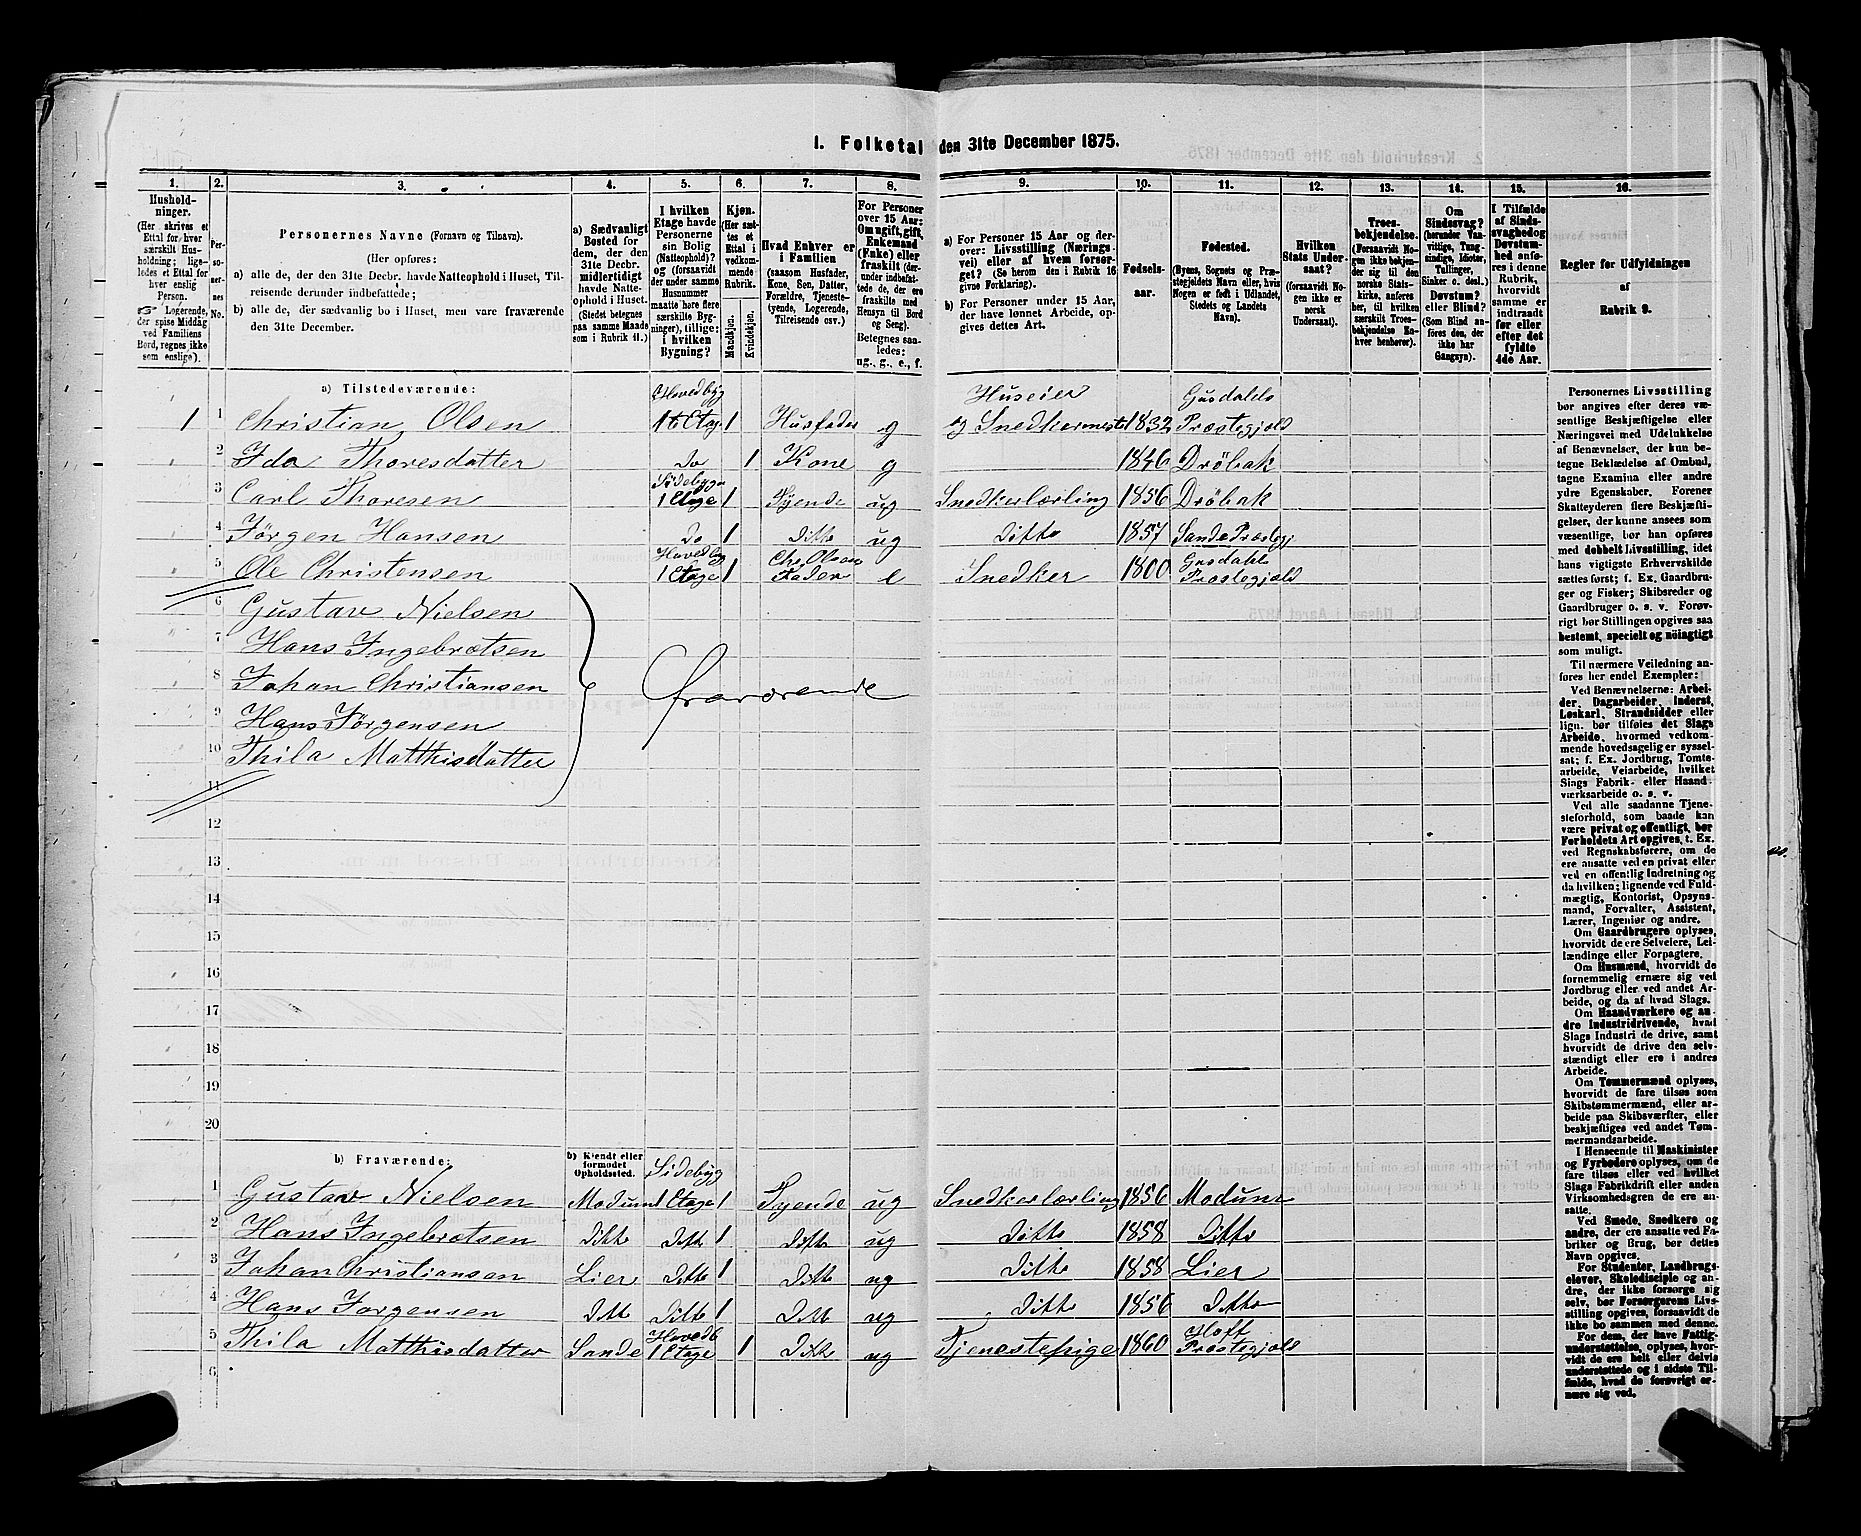 1. Folketal den 31te December 1875.
1. 2. 3. 4. 5. 6. 7. 8. 9. 10. 11. 12. 13. 14. 15. 16.
Husholdninger.
(Her skrives et
Ettal for hver
særskilt Husholdning;
ligeledes et Ettal for
hver enslig
Person.
Logerende,
der spise Middag
ved Familiens
Bord, regnes ikke
som enslige).
Personernes No.
Personernes Navne (Fornavn og Tilnavn).
(Her opføres:
a) alle de, der den 31te Decbr. havde Natteophold i Huset, Tilreisende derunder indbefattede;
b) alle de, der sædvanlig bo i Huset, men vare fraværende
den 31te December.
a) Sædvanligt
Bosted for
dem, der den
31te Decbr.
midlertidigt
havde Natteophold i Huset.
(Stedet betegnes
paa samme Maade
som i Rubrik 11.)
I hvilken
Etage havde
Personerne
sin Bolig
(Natteophold)?
og (forsaavidt
der under samme
Husnummer
maatte høre flere
særskilte Bygninger), tillige:
i hvilken
Bygning?
Kjøn.
(Her sættes et
Ettal i
vedkommende
Rubrik.
Mandkjøn. Kvindekjøn.
Hvad Enhver er
i Familien
(saasom Husfader,
Kone, Søn, Datter,
Forældre, Tjenestetyende, Logerende,
Tilreisende osv.)
For Personer
over 15 Aar:
Om ugift, gift,
Enkemand
(Enke) eller
fraskilt (derunder indbefattede de, der ere
fraskilte med
Hensyn til Bord
og Seng).
Betegnes saaledes:
ug., g., e., f.
a) For Personer 15 Aar og derover: Livsstilling (Næringsvei) eller af hvem forsørget? (Se herom den i Rubrik 16
givne Forklaring).
b) For Personer under 15 Aar,
der have lønnet Arbeide, opgives dettes Art.
Fødselsaar.
Fødested.
(Byens, Sognets og Præstegjeldets Navn, eller, hvis
Nogen er født i Udlandet,
Stedets og Landets
Navn).
Hvilken
Stats Undersaat?
(forsaavidt Nogen ikke er
norsk
Undersaat).
Troesbekjendelse.
(Forsaavidt Nogen ikke bekjender sig til den
norske Statskirke, anføres
her, til hvilken
særskilt Troesbekjendelse Enhver henhører).
Om
Sindssvag?
(herunder Vanvittige, Tungsindige, Idioter,
Tullinger,
Sinker o. desl.)
Døvstum?
eller Blind?
(Som Blind anføres den, der
ikke har
Gangsyn).
I Tilfælde
af Sindssvaghed og
Døvstumhed anføres i denne
Rubrik,
hvorvidt
samme er
indtraadt
før eller
efter det
fyldte
4de Aar.
Regler for Udfyldningen
af
Rubrik 9.
a) Tilstedeværende:
1 1 Christian Olsen Hovedbyg 1te Etage 1 Husfader g Huseier og Snedkermester 1832 Gusdals Præstegjæld
2 Ida Thoresdatter do 1 Kone g 1846 Dröbak
3 Carl Thoresen Sidebygn 1 Etage 1 Tyende ug Snedkerlærling 1856 Dröbak
4 Jørgen Hansen do 1 ditto ug ditto 1857 Sande Præstegj
5 Ole Christensen Hovedbyg 1 Etage 1 Chr. Olsens Fader e Snedker 1800 Gusdals Præstegjæld
6 Gustav Nielsen
7 Hans Ingebrætsen
8 Johan Christiansen
fraværende
9 Hans Jørgensen
10 Thila Matthisdatter
11
12
13
14
15
16
17
18
19
20
b) Fraværende: b) Kjendt eller formodet Opholdssted.
1 Gustav Nielsen Modum Sidebyg 1 Etage 1 Tyende ug Snedkerlærling 1856 Modum
2 Hans Ingebrætsen Ditto Ditto 1 Ditto ug Ditto 1858 Ditto
3 Johan Christiansen Lier Ditto 1 Ditto ug Ditto 1858 Lier
4 Hans Jørgensen Ditto Ditto 1 Ditto ug Ditto 1856 Ditto
5 Thila Matthisdatter Sande Hovedb 1 Etage 1 Ditto ug Tjenestepige 1860 Hoff Præstegjæld
6
Personernes Livsstilling
bør angives efter deres væsentlige Beskjæftigelse eller
Næringsvei med Udelukkelse
af Benævnelser, der kun betegne Beklædelse af Ombud,
tagne Examina eller andre
ydre Egenskaber. Forener
Skatteyderen flere Beskjæftigelser, der kunne ansees som
væsentlige, bør han opføres
med dobbelt Livsstilling, idet
hans vigtigste Erhvervskilde
sættes først; f. Ex. Gaardbruger og Fisker; Skibsreder og
Gaardbruger o. s. v. Forøvrigt bør Stillingen opgives saa
bestemt, specielt og nøiagtigt
som muligt.
Til nærmere Veiledning anføres her endel Exempler:
Ved Benævnelserne: Arbeider, Dagarbeider, Inderst,
Løskarl, Strandsidder eller
lign. bør tilføies det Slags
Arbeide, hvormed vedkommende hovedsagelig er sysselsat; f. Ex. Jordbrug, Tomtearbeide, Veiarbeide, hvilket
Slags Fabrik- eller Haandværksarbeide o. s. v.
Ved alle saadanne Tjenesteforhold, som baade kan
være privat og offentligt, bør
Forholdets Art opgives, t. Ex.
ved Regnskabsførere, om de
ere ansatte ved en privat eller
ved en offentlig Indretning og
da hvilken; lignende ved Fuldmægtig, Kontorist, Opsynsmand, Forvalter, Assistent,
Lærer, Ingeniør og andre.
Om Gaardbrugere oplyses,
hvorvidt de ere Selveiere, Leilændinge eller Forpagtere.
Om Husmænd, hvorvidt de
fornemmelig ernære sig ved
Jordbrug eller ved andet Arbeide, og da af hvad Slags.
Om Haandværkere og andre Industridrivende, hvad
Slags Industri de drive, samt
hvorvidt de drive den selvstændigt eller ere i andres
Arbeide.
Om Tømmermænd oplyses,
hvorvidt de fare tilsøs som
Skibstømmermænd, eller arbeide paa Skibsværfter, eller
beskjæftiges ved andet Tømmermandsarbeide.
I Henseende til Maskinister
og Fyrbødere oplyses, om de
fare tilsøs eller ved hvilket
Slags Fabrikdrift eller anden
Virksomhedsgren de ere ansatte.
Ved Smede, Snedkere og
andre, der ere ansatte ved Fabriker og Brug, bør dettes
Navn opgives.
For Studenter, Landbrugselever, Skoledisciple og andre, der ikke forsørge sig
selv, bør Forsørgerens Livsstilling opgives, forsaavidt de
ikke bo sammen med denne.
For dem, der have Fattigunderstøttelse, oplyses, hvorvidt de ere helt eller delvis
understøttede og i sidste Tilfælde, hvad de forøvrigt ernære sig ved.